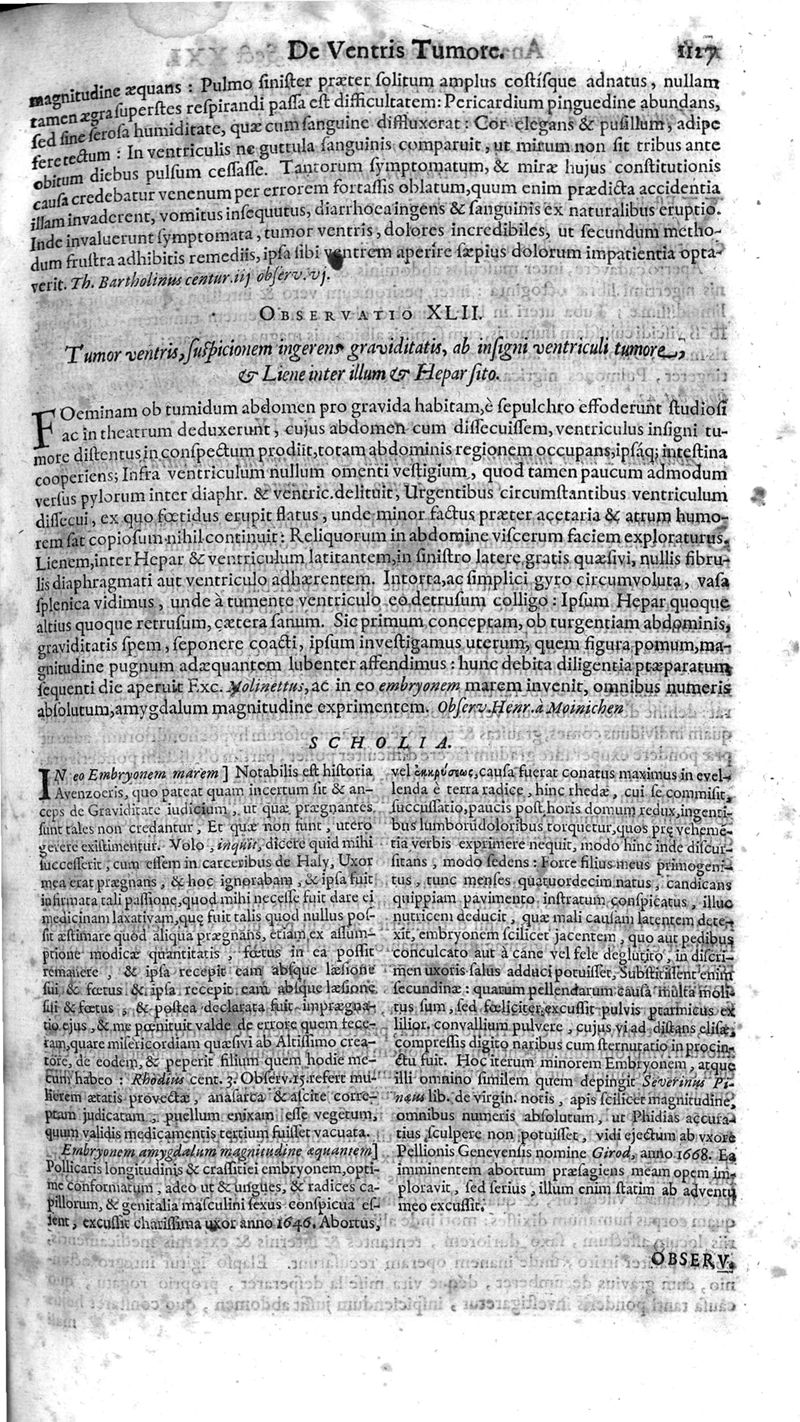 De Ventris Tumore. 1127
magnitudine æquans : Pulmo ſiniſter præter ſolitum amplus coſtiſque adnatus, nullam
tamen ægra ſuperſtes reſpirandi paſſa eſt difficultatem: Pericardium pinguedine abundans,
ſed ſine ſeroſa humiditate, quæ cum ſanguine diffluxerat : Cor elegans & puſillum, adipe
fere tectum : In ventriculis ne guttula ſanguinis comparuit, ut mirum non ſit tribus ante
obitum diebus pulſum ceſſaſſe. Tantorum ſymptomatum, & miræ hujus conſtitutionis
cauſa credebatur venenum per errorem fortaſſis oblatum, quum enim prædicta accidentia
illam invaderent, vomitus inſequutus, diarrhoea ingens & ſanguinis ex naturalibus eruptio.
Inde invaluerunt ſymptomata, tumor ventris, dolores incredibiles, ut ſecundum metho-
dum fruſtra adhibitis remediis, ipſa ſibi ventrem aperire ſæpius dolorum impatientia opta-
verit. Th. Bartholinus centur. iij obſerv. vj.
OBSERVATIO XLII.
Tumor ventris, ſuſpicionem ingerens graviditatis, ab inſigni ventriculi tumore,
& Liene inter illum & Hepar ſito.
FOeminam ob tumidum abdomen pro gravida habitam, è ſepulchro effoderunt ſtudioſi
ac in theatrum deduxerunt, cujus abdomen cum diſſecuiſſem, ventriculus inſigni tu-
more diſtentus in conſpectum prodiit, totam abdominis regionem occupans, ipſáq; inteſtina
cooperiens; Infra ventriculum nullum omenti veſtigium, quod tamen paucum admodum
verſus pylorum inter diaphr. & ventric. delituit, Urgentibus circumſtantibus ventriculum
diſſecui, ex quo fœtidus erupit flatus, unde minor factus præter acetaria & atrum humo-
rem ſat copioſum nihil continuit : Reliquorum in abdomine viſcerum faciem exploraturus,
Lienem, inter Hepar & ventriculum latitantem, in ſiniſtro latere gratis quæſivi, nullis fibru-
lis diaphragmati aut ventriculo adhærentem. Intorta, ac ſimplici gyro circumvoluta, vaſa
ſplenica vidimus, unde à tumente ventriculo eo detruſum colligo : Ipſum Hepar quoque
altius quoque retruſum, cætera ſanum. Sic primum conceptam, ob turgentiam abdominis,
graviditatis ſpem, ſeponere coacti, ipſum inveſtigamus uterum, quem figura pomum, ma-
gnitudine pugnum adæquantem lubenter aſſendimus : hunc debita diligentia præparatum
ſequenti die aperuit Exc. Molinettus, ac in eo embryonem marem invenit, omnibus numeris
abſolutum, amygdalum magnitudine exprimentem. Obſerv. Henr. à Moinichen
SCHOLIA.
IN eo Embryonem marem ] Notabilis eſt hiſtoria
Avenzoeris, quo pateat quam incertum ſit & an-
ceps de Graviditate iudicium, ut quæ prægnantes
ſunt tales non credantur, Et quæ non ſunt, utero
gerere exiſtimentur. Volo, inquit, dicere quid mihi
ſucceſſerit, cum eſſem in carceribus de Haly, Uxor
mea erat prægnans, & hoc ignorabam, & ipſa fuit
infirmata tali paſſione, quod mihi neceſſe fuit dare ei
medicinam laxativam, quę fuit talis quod nullus poſ-
ſit æſtimare quòd aliqua prægnans, etiam ex aſſum-
ptione modicæ quantitatis, fœtus in ea poſſit
remanere, & ipſa recepit eam abſque læſione
ſui & fœtus & ipſa recepit eam abſque læſione
ſui & fœtus, & poſtea declarata fuit imprægna-
tio ejus, & me pœnituit valde de errore quem fece-
ram, quare miſericordiam quæſivi ab Altiſſimo crea-
tore, de eodem, & peperit filium quem hodie me-
cum habeo : Rhodius cent. 3. Obſerv. 15. refert mu-
lierem ætatis provectæ, anaſarca & aſcite corre-
ptam judicatam, puellum enixam eſſe vegetum,
quum validis medicamentis tertium fuiſſet vacuata.
Embryonem amygdalum magnitudine æquantem]
Pollicaris longitudinis & craſſitiei embryonem, opti-
me conformatum, adeo ut & ungues, & radices ca-
pillorum, & genitalia maſculini ſexus conſpicua eſ-
ſent, excuſſit chariſſima uxor anno 1646. Abortus,
vel cauſa fuerat conatus maximus in evel-
lenda è terra radice, hinc rhedæ, cui ſe commiſit,
ſuccuſſatio, paucis poſt horis domum redux, ingenti-
bus lumborū doloribus torquetur, quos prę vehemē-
tia verbis exprimere nequit, modo hinc inde diſcur-
ſitans, modo ſedens : Forte filius meus primogeni-
tus, tunc menſes quatuordecim natus, candicans
quippiam pavimento inſtratum conſpicatus, illuc
nutricem deducit, quæ mali cauſam latentem dete-
xit, embryonem ſcilicet jacentem, quo aut pedibus
conculcato aut à cane vel fele deglutito, in diſcri-
men uxoris ſalus adduci potuiſſet, Subſtitiſſent enim
ſecundinæ : quarum pellendarum cauſa multa moli-
tus ſum, ſed fœliciter excuſſit pulvis ptarmicus ex
lilior. convallium pulvere, cujus vi ad diſtans eliſæ,
compreſſis digito naribus cum ſternutatio in procin-
ctu fuit. Hoc iterum minorem Embryonem, atque
illi omnino ſimilem quem depingit Severinus Pi-
næus lib. de virgin. notis, apis ſcilicet magnitudine,
omnibus numeris abſolutum, ut Phidias accura-
tius ſculpere non potuiſſet, vidi ejectum ab uxore
Pellionis Genevenſis nomine Girod, anno 1668. Ea
imminentem abortum præſagiens meam opem im-
ploravit, ſed ſerius, illum enim ſtatim ab adventu
meo excuſſit.
OBSERV.